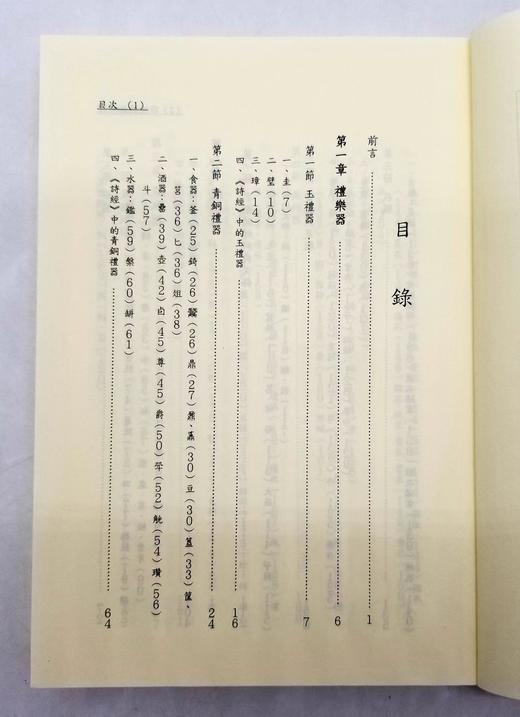 目錄
前言……1
第一章 禮樂器……6
第一節 玉禮器……7
一、圭(7)
二、璧(10)
三、璋(14)
四、《詩經》中的玉禮器……16
第二節 青銅禮器……24
一、食器：釜(25)錡(26)鬵(26)鼎(27)鼐、鼒(30)豆(30)簋(33)筐、
筥(36)匕(36)俎(38)
二、酒器：罍(39)壺(42)卣(45)尊(45)爵(50)斝(52)觥(54)瓚(56)
斗(57)
三、水器：鑑(59)槃(60)缾(61)
四、《詩經》中的青銅禮器……64
目次 (1)